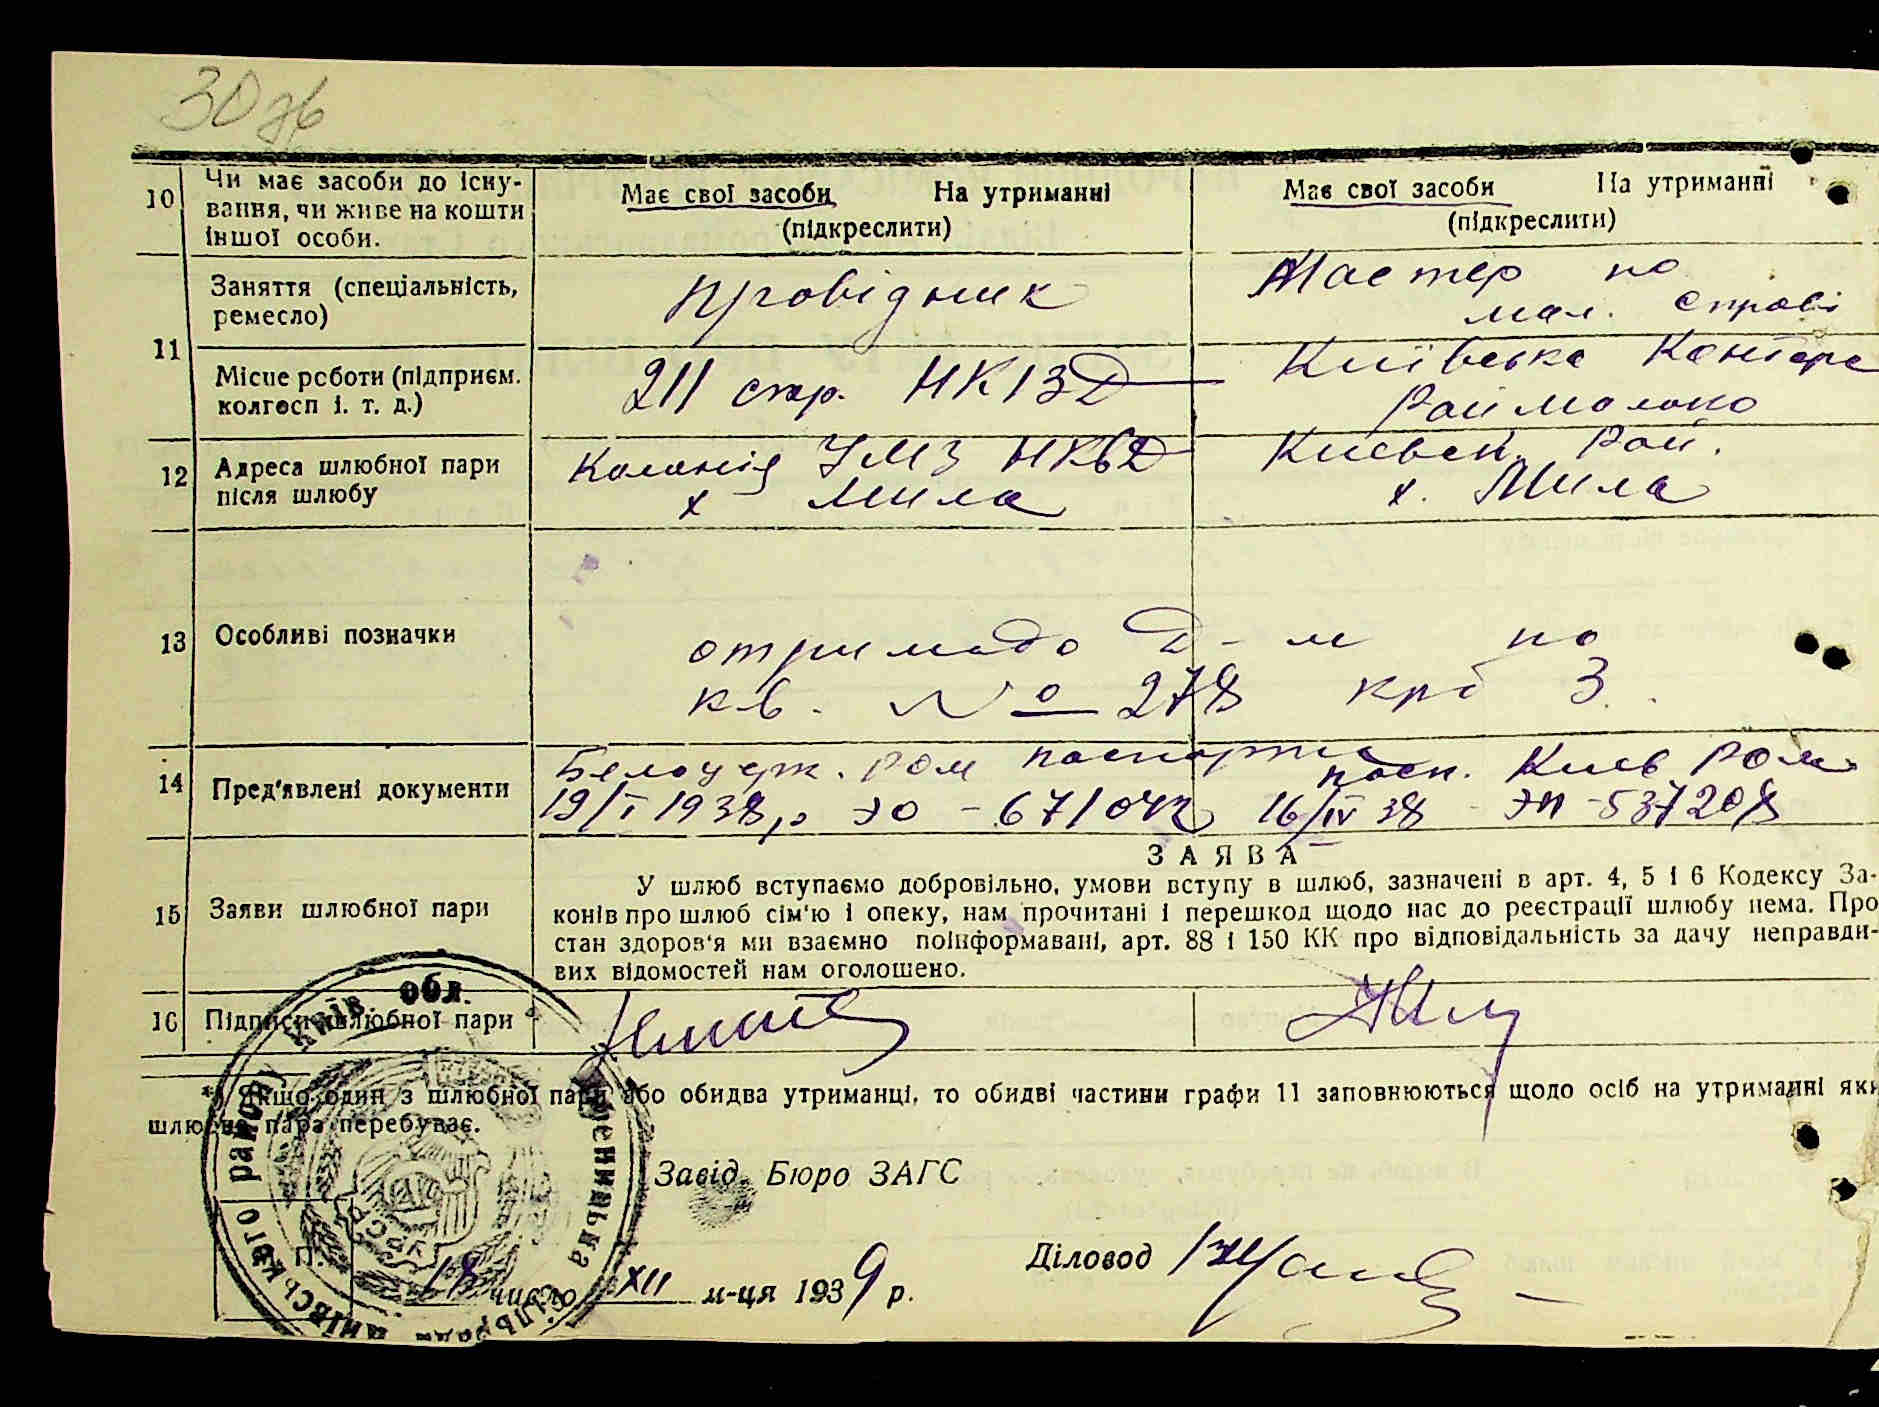 30 зв
10 Чи має засоби до існу-
вання, чи живе на кошти
іншої особи.
Має свої засоби На утриманні
(підкреслити)
Має свої засоби На утриманні
(підкреслити)
11 Заняття (спеціальність,
ремесло)
провідник
Мастер по
мол. справі
Місце роботи (підприєм.
колгосп і. т. д.)
211 стр. НКЗД
Київська Контора
Раймолоко
12 Адреса шлюбної пари
після шлюбу
Колонія УМЗ НКВД
х Мила
Києвск. Рай.
х. Мила
13 Особливі позначки
отримадо по
кв. № 278 крб 3.
14 Пред'явлені документи
Белоцерк. РОМ паспорт
19/I 1938р ЭО - 671042
посп. Киев РОМ
16/IV 38 - ЭП - 537208
ЗАЯВА
15 Заяви шлюбної пари
У шлюб вступаємо добровільно, умови вступу в шлюб, зазначені в арт. 4, 5 і 6 Кодексу За-
конів про шлюб сім'ю і опеку, нам прочитані і перешкод щодо нас до реєстрації шлюбу нема. Про
стан здоров'я ми взаємно поінформавані, арт. 88 і 150 КК про відповідальність за дачу неправди-
вих відомостей нам оголошено.
16 Підписи шлюбної пари
*) Якщо один з шлюбної пари або обидва утриманці, то обидві частини графи 11 заповнюються щодо осіб на утриманні яки
шлюбна пара перебуває.
Київ. обл.
району
Завід. Бюро ЗАГС
Діловод
П.
18 число XII м-ця 1939 р.